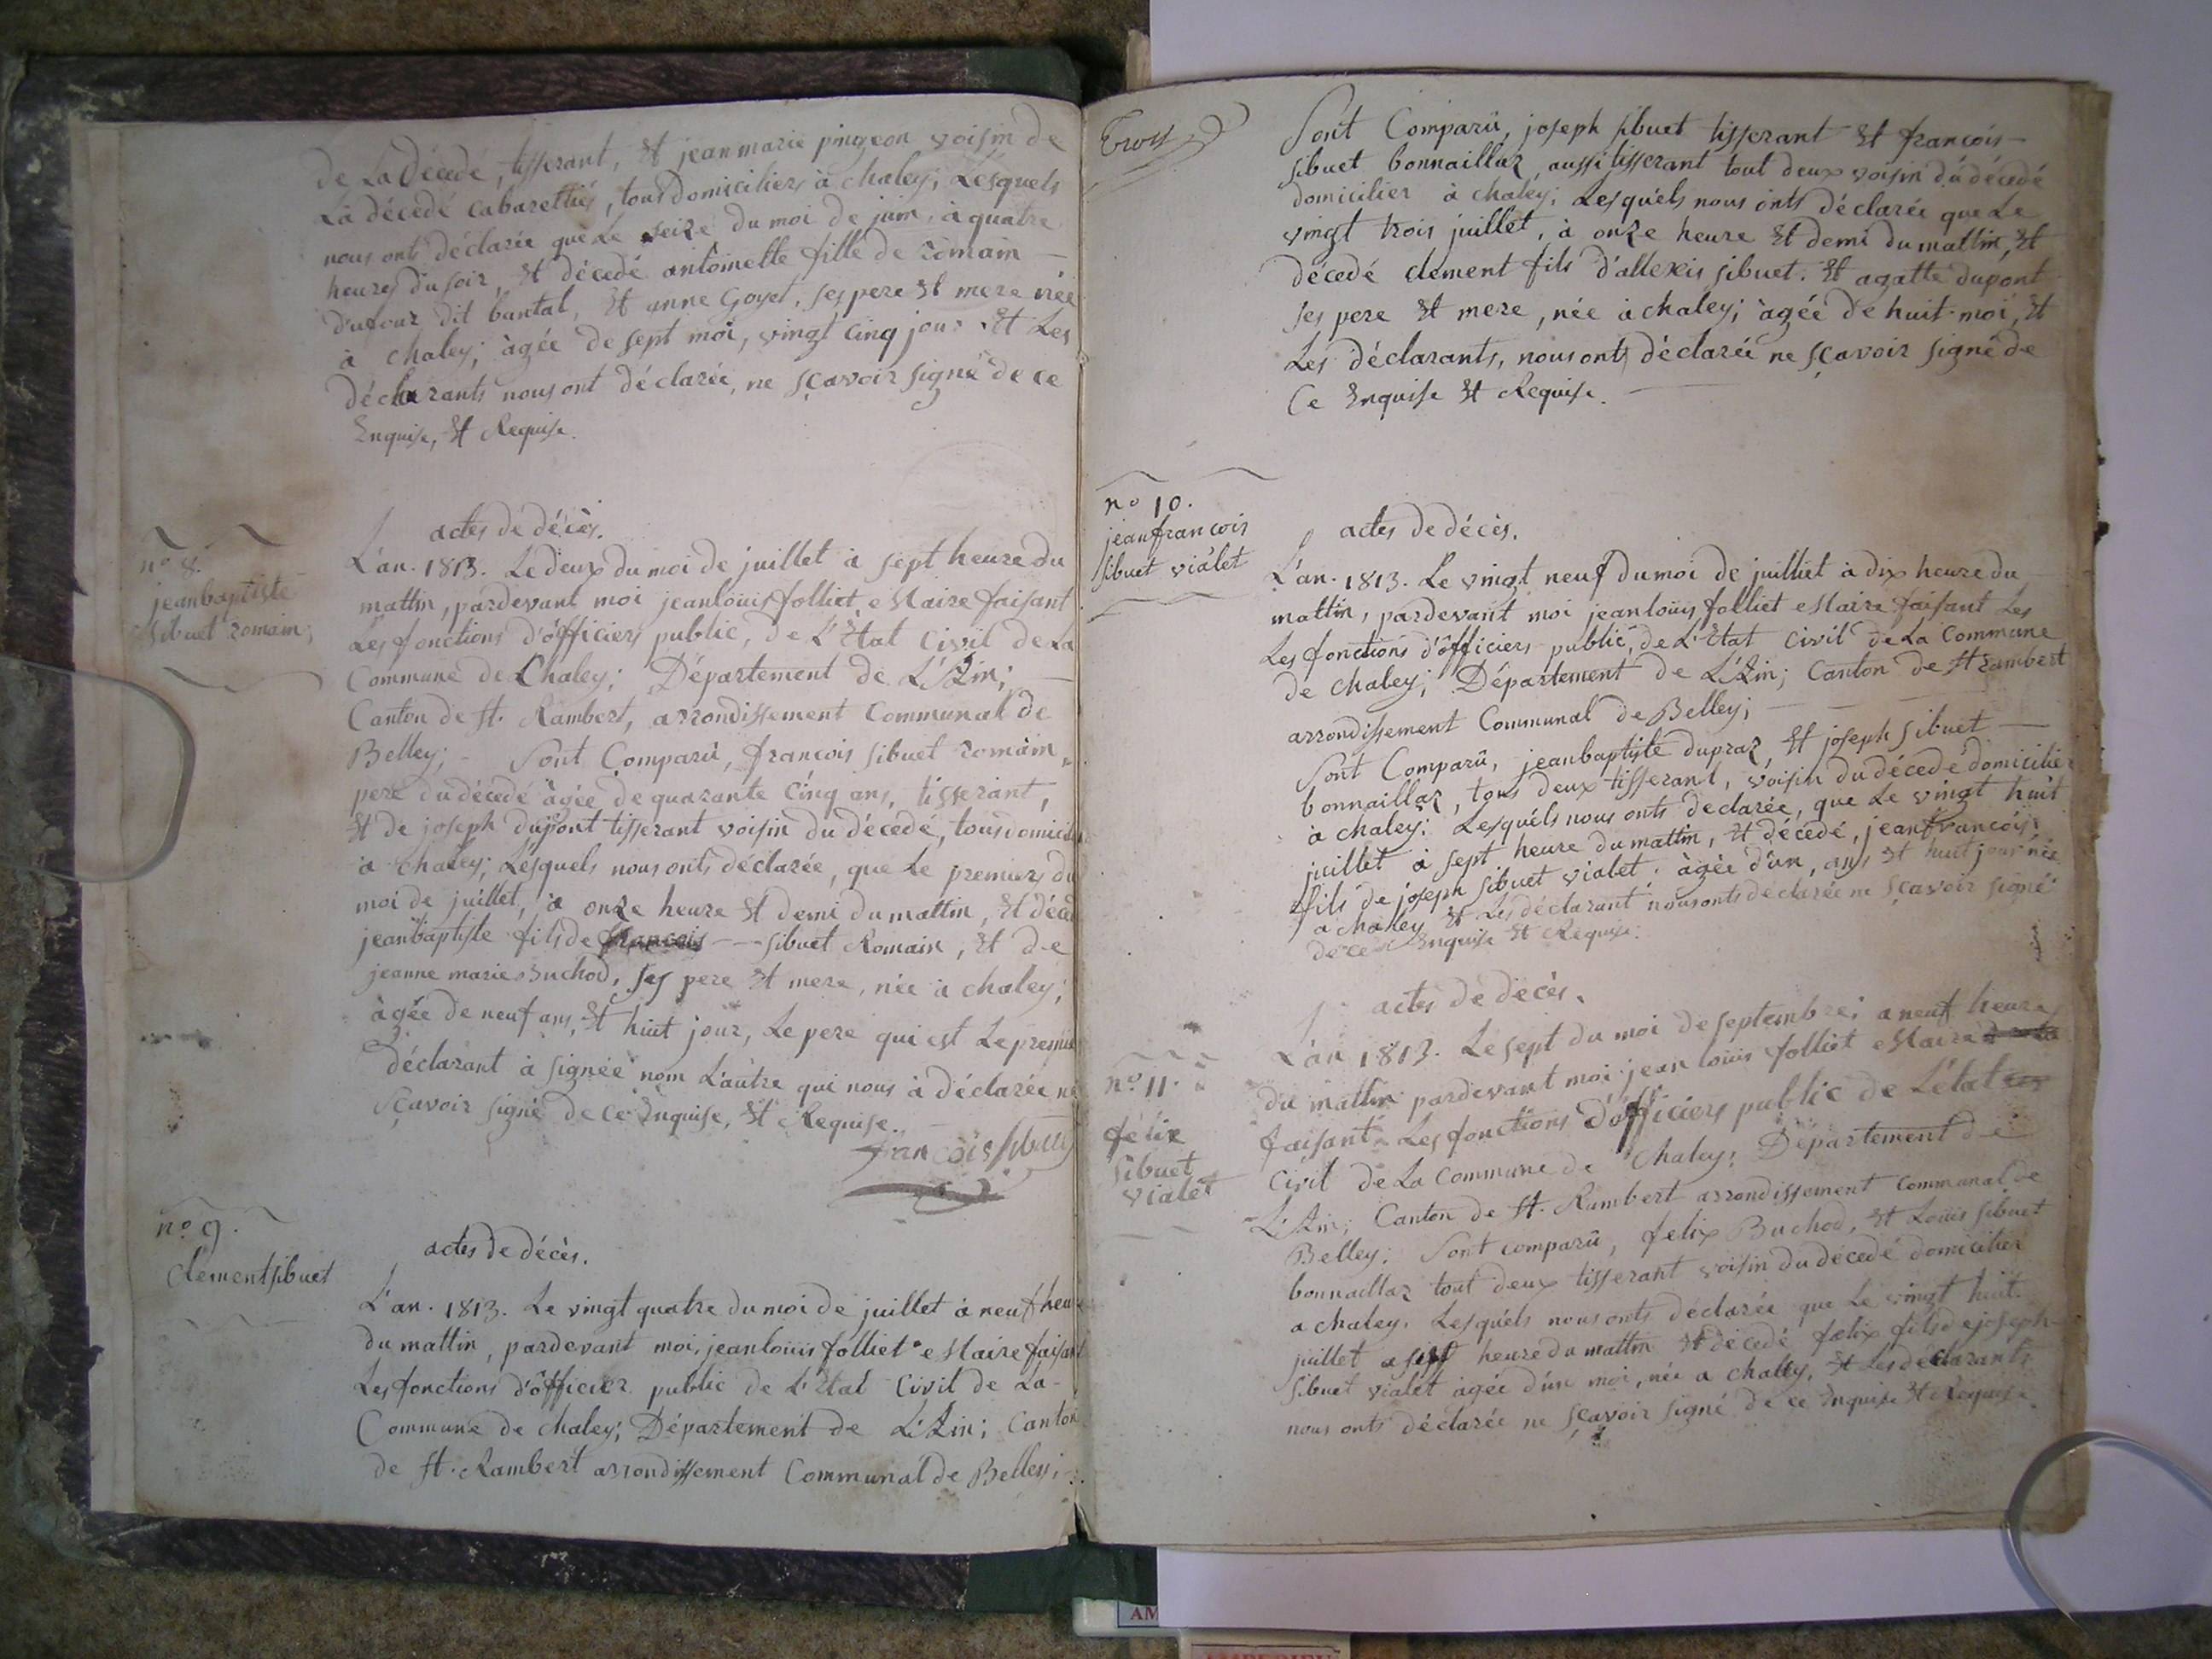 de La décedé, tisserant, Et jean marie pingeon voisin de
La décedé cabarettiés, tous domiciliers à chaley; Lesquels
nous onts déclarée que Le seize du moi de juin, à quatre
heures du soir, Et décedé antoinette fille de romain
dufour dit buntal, Et anne Goyet, ses pere Et mere née
à chaley; àgée de sept moi, vingt cinq jour. Et Les
déclarants nous ont déclarée, ne sçavoir signé de ce
Enquise, Et Requise.
no 8.
jeanbaptiste
sibuet romain;
actes de décès.
L'an. 1813. Le deux du moi de juillet à sept heure du
mattin, pardevant moi jeanlouis folliet, Maire faisant
Les fonctions d'officiers public, de L'Etat Civil de La
Commune de Chaley; Département de L'Ain;
Canton de St. Rambert, arrondissement Communal de
Belley; - Sont Comparû, francois sibuet romain,
pere du décedé àgée de quarante Cinq ans, tisserant,
Et de joseph dupont tisserant voisin du décedé, tous domicili
à chaley; Lesquels nous onts déclarée, que Le premiers du
moi de juillet, à onze heure Et demi du mattin, Et déced
jeanbaptiste fils de francois -- sibuet Romain, Et de
jeanne marie Buchod, ses pere Et mere, née à chaley;
àgée de neuf ans, Et huit jour, Le pere qui est Le premier
déclarant à signée nom L'autre qui nous à déclarée ne
sçavoir signé de ce Enquise, Et Requise.
francois sibuet
no 9.
Clement sibuet
actes de décès.
L'an. 1813. Le vingt quatre du moi de juillet à neuf heure
du mattin, pardevant moi, jeanlouis folliet Maire faisant
Les fonctions d'officier public de L'Etat Civil de La-
Commune de chaley; Département de L'Ain; Canton
de St. Rambert arrondissement Communal de Belley;
Sont Comparû, joseph sibuet tisserant Et francois-
sibuet bonnaillaz, aussi tisserant tout deux voisin du décedé
domicilier à chaley; Lesquéls nous onts déclarée que Le
vingt trois juillet, à onze heure Et demi du mattin, Et
décedé clement fils d'allexis sibuet. Et agatte dupont
ses pere Et mere, née à chaley; àgée de huit moi, Et
Les déclarants, nous onts déclarée ne sçavoir signé de
Ce Enquise Et Requise.
no 10.
jeanfrancois
sibuet vialet
actes de décès.
L'an. 1813. Le vingt neuf du moi de juilliet à dix heure du
mattin, pardevant moi jeanlouis folliet Maire faisant Les
Les fonctions d'officiers public, de L'Etat civil de La Commune
de chaley; Département de L'Ain; Canton de St rambert
arrondissement Communal de Belley;
Sont Comparû, jeanbaptiste dupraz, Et joseph sibuet
bonnaillaz, tous deux tisserant, voisin du décedé domicilier
à chaley; Lesquéls nous onts declarée, que Le vingt huit
juillet à sept heure du mattin, Et décédé, jeanfrancois
fils de joseph sibuet vialet. àgée d'un, ans Et huit jour née
à chaley Et Les déclarant nous onts declarée ne sçavoir signé
de ce Enquise Et Requise.
no 11.
félix
sibuet
vialet
actes de décès.
L'an 1813. Le sept du moi de septembre; a neuf heures
du mattin pardevant moi jean louis folliet Maire
faisant Les fonctions d'officiers public de L'état
Civil de La Commune de Chaley; Département de
L'Ain; Canton de St. Rambert arrondissement Communal de
Belley; Sont comparû, felix Buchod, Et Louis sibuet
bonnaillaz tout deux tisserant voisin du décedé domicilier
a chaley. Lesquéls nous onts déclarée que Le vingt huit
juillet a sept heure du mattin Et décedé, felix fils de joseph-
sibuet vialet àgée d'un moi, née a chaley, Et Les déclarants
nous onts déclarée ne sçavoir signé de ce Enquise Et Requise.